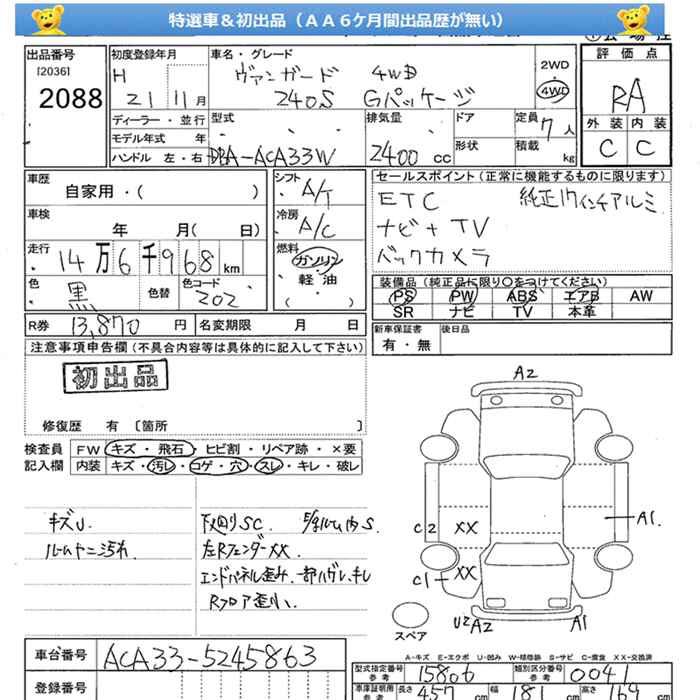 特選車＆初出品（ＡＡ６ケ月間出品歴が無い）
出品番号 初度登録年月 車名・グレード 評価点
[2036] H ヴァンガード 4WD 2WD
2088 21 11月 240S Gパッケージ 4WD RA
ディーラー・並行 型式 排気量 ドア 定員 7人 外装 内装
モデル年式 年 形状 積載 kg C C
ハンドル 左・右 DBA-ACA33W 2400 cc
車歴 シフト セールスポイント（正常に機能するものに限ります）
自家用・( ) A/T ETC 純正17インチアルミ
車検 冷房 ナビ+TV
年 月( 日) A/C バックカメラ
走行 燃料
14万6千968km ガソリン・軽油・( )
装備品（純正品に限り○をつけてください）
色 黒 色替 色コード 202 PS PW ABS エアB AW
SR ナビ TV 本革
R券 13,870円 名変期限 月 日 新車保証書 有・無 後日品
注意事項申告欄（不具合内容等は具体的に記入して下さい）
初出品
修復歴 有 〔箇所
検査員記入欄 FW キズ・飛石・ヒビ割・リペア跡・×要
内装 キズ・汚レ・コゲ・穴・スレ・キレ・破レ
キズU.
下廻りSC.
左Rフェンダー XX.
エンドパネル歪み.
Rフロア歪小.
A2
C2 XX A1
C1 XX
U2 A2 A1
スペア
A-キズ E-エクボ U-凹み W-補修跡 S-サビ C-腐食 XX-交換済
車台番号 ACA33-5245863
型式指定番号 参考 15806 類別区分番号 参考 0041
登録番号
車庫証明用 参考 長さ 457 cm 幅 181 cm 高さ 169 cm